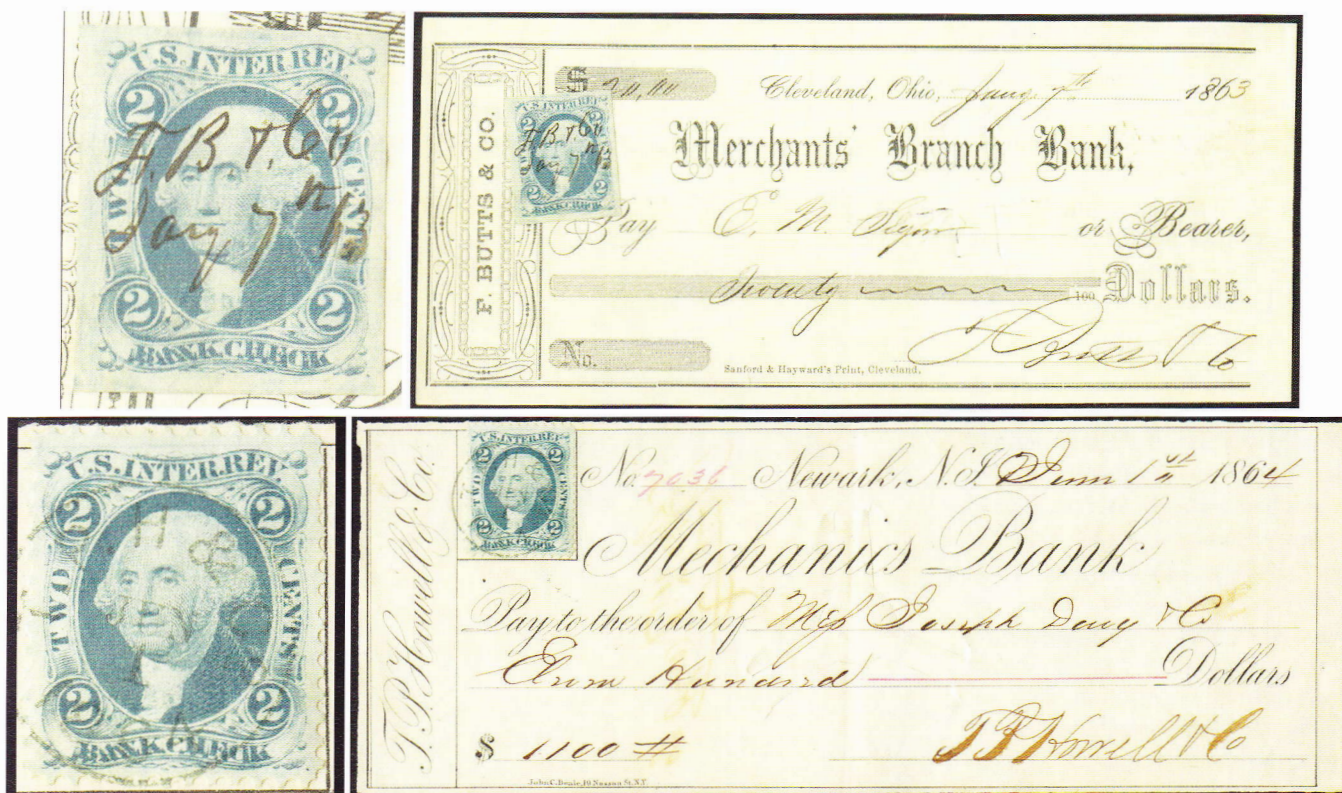 U.S. INTER. REV.
2 2
F. B. & Co
TWO CENTS
Jany 7th 63
2 2
BANK CHECK
F. BUTTS & CO.
$ 20,00 Cleveland, Ohio, Jany 7th 1863
U.S. INTER. REV.
2 2
F. B. & Co
Jany 7th 63
2 2
BANK CHECK
Merchants' Branch Bank,
Pay E. M. or Bearer,
Twenty 100 Dollars.
Butts & Co
No.
Sanford & Hayward's Print, Cleveland.
U.S. INTER. REV.
2 2
TWO CENTS
2 2
BANK CHECK
T. P. Howell & Co.
U.S. INTER. REV.
2 2
TWO CENTS
2 2
BANK CHECK
No. 7636 Newark, N.J. 1st 1864
Mechanics Bank
Pay to the order of Joseph & Co
Hundred Dollars
$ 1100 T P Howell & Co
John C. Beale, 10 Nassau St. N.Y.